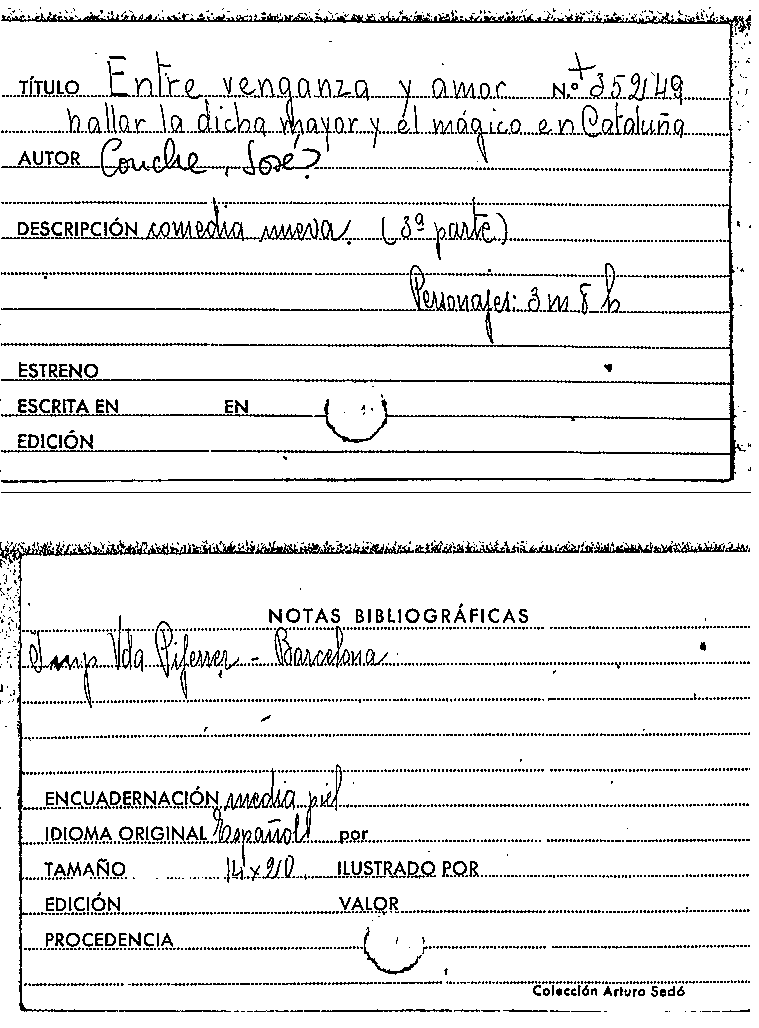 TÍTULO Entre venganza y amor N.º + 352149
hallar la dicha mayor y el mágico en Cataluña
AUTOR Conche, José?
DESCRIPCIÓN comedia nueva. (3ª parte)
Personajes: 3 m 8 h
ESTRENO
ESCRITA EN EN
EDICIÓN
NOTAS BIBLIOGRÁFICAS
Imp Vda Piferrer - Barcelona
ENCUADERNACIÓN media piel
IDIOMA ORIGINAL Español por
TAMAÑO 14 x 210 ILUSTRADO POR
EDICIÓN VALOR
PROCEDENCIA
Colección Arturo Sedó